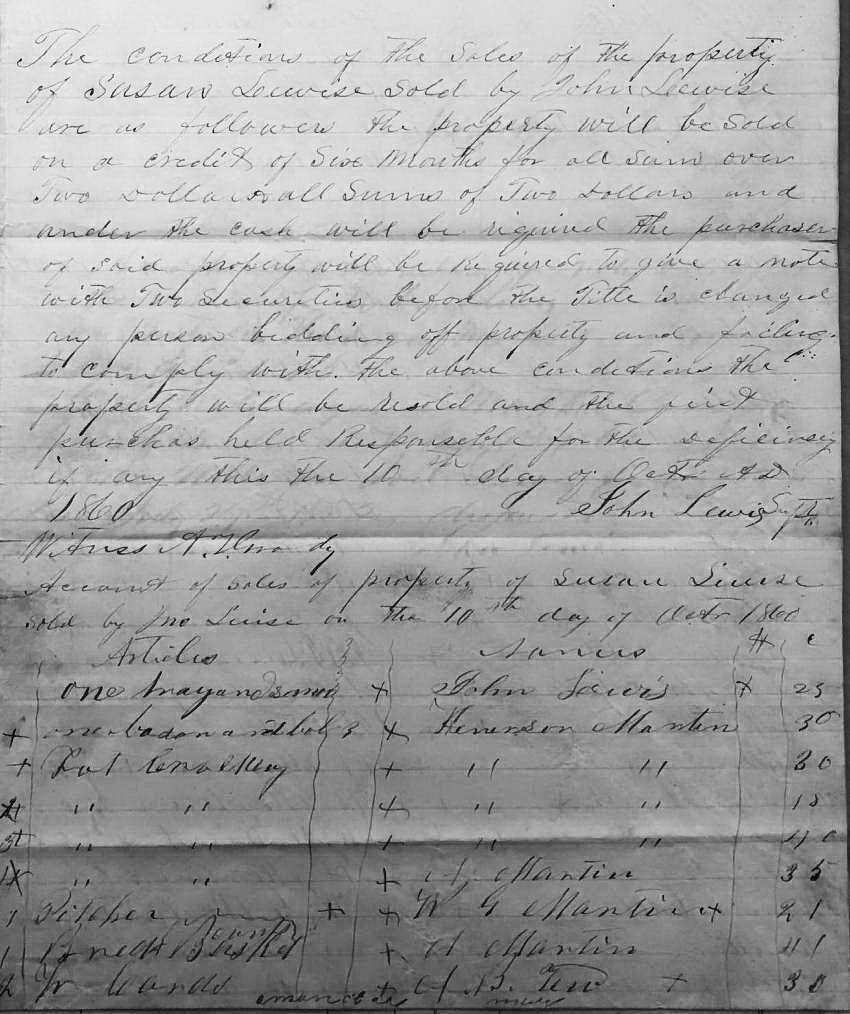 The conditions of the Sales of the property
of Susan Leewise Sold by John Leewise
are as followers the property will be Sold
on a credit of Six Months for all Sum over
Two Dollars all Sums of Two Dollars and
under the cash will be riquired the purchaser
of said property will be required to give a note
with Two Securities before the Title is changed
any person bidding off property and failing
to comply with the above conditions the
property will be resold and the first
purchas held Responseble for the
if any this the 10th day of Octr AD
1860 John Lewis
Witness A
Account of Sales of property of Susan Leuise
sold by Jno Leuise on the 10th day of Octr 1860
Articles Names $ c
one and + John Lewis + 25
+ one and + Henerson Martin 30
+ Lot + " " 20
" " + " "
" " + " " 40
" " + H Martin 35
1 Pitcher + + W G Martin + 21
1 Bread + H Martin 41
2 Cards + + 30